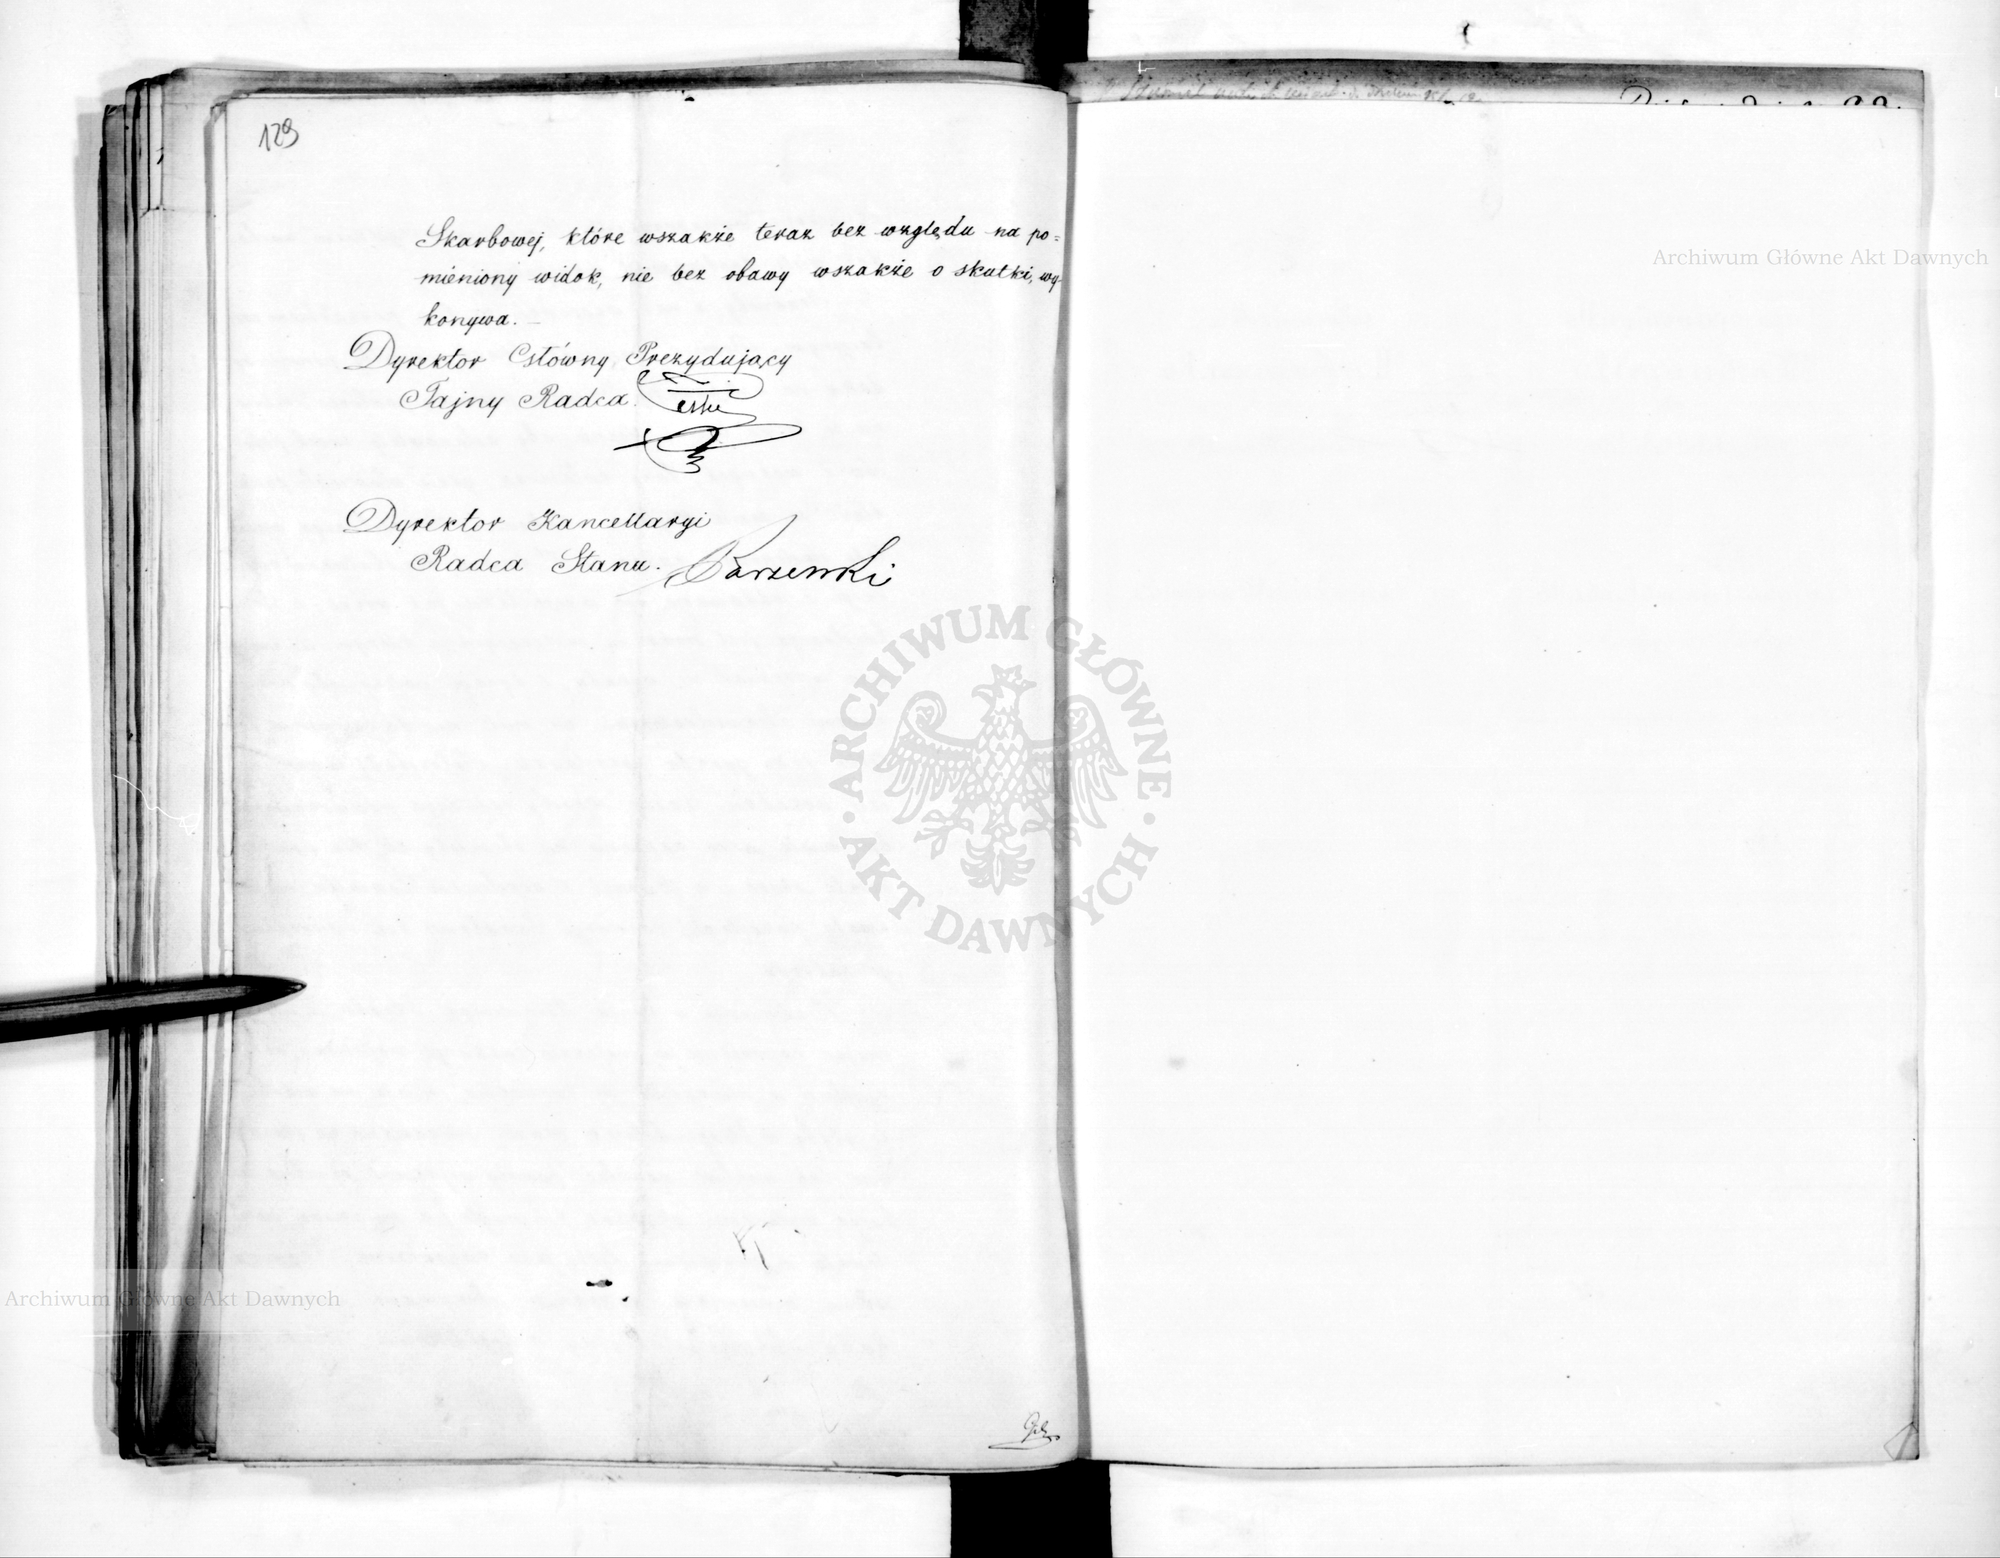 129
Skarbowej, które wszakże teraz bez względu na po=
mieniony widok, nie bez obawy wszakże o skutki, wy-
konywa. —
Dyrektor Główny, Prezydujący
Tajny Radca.
Dyrektor Kancellaryi
Radca Stanu.
Archiwum Główne Akt Dawnych
ARCHIWUM GŁÓWNE
· AKT DAWNYCH ·
Archiwum Główne Akt Dawnych